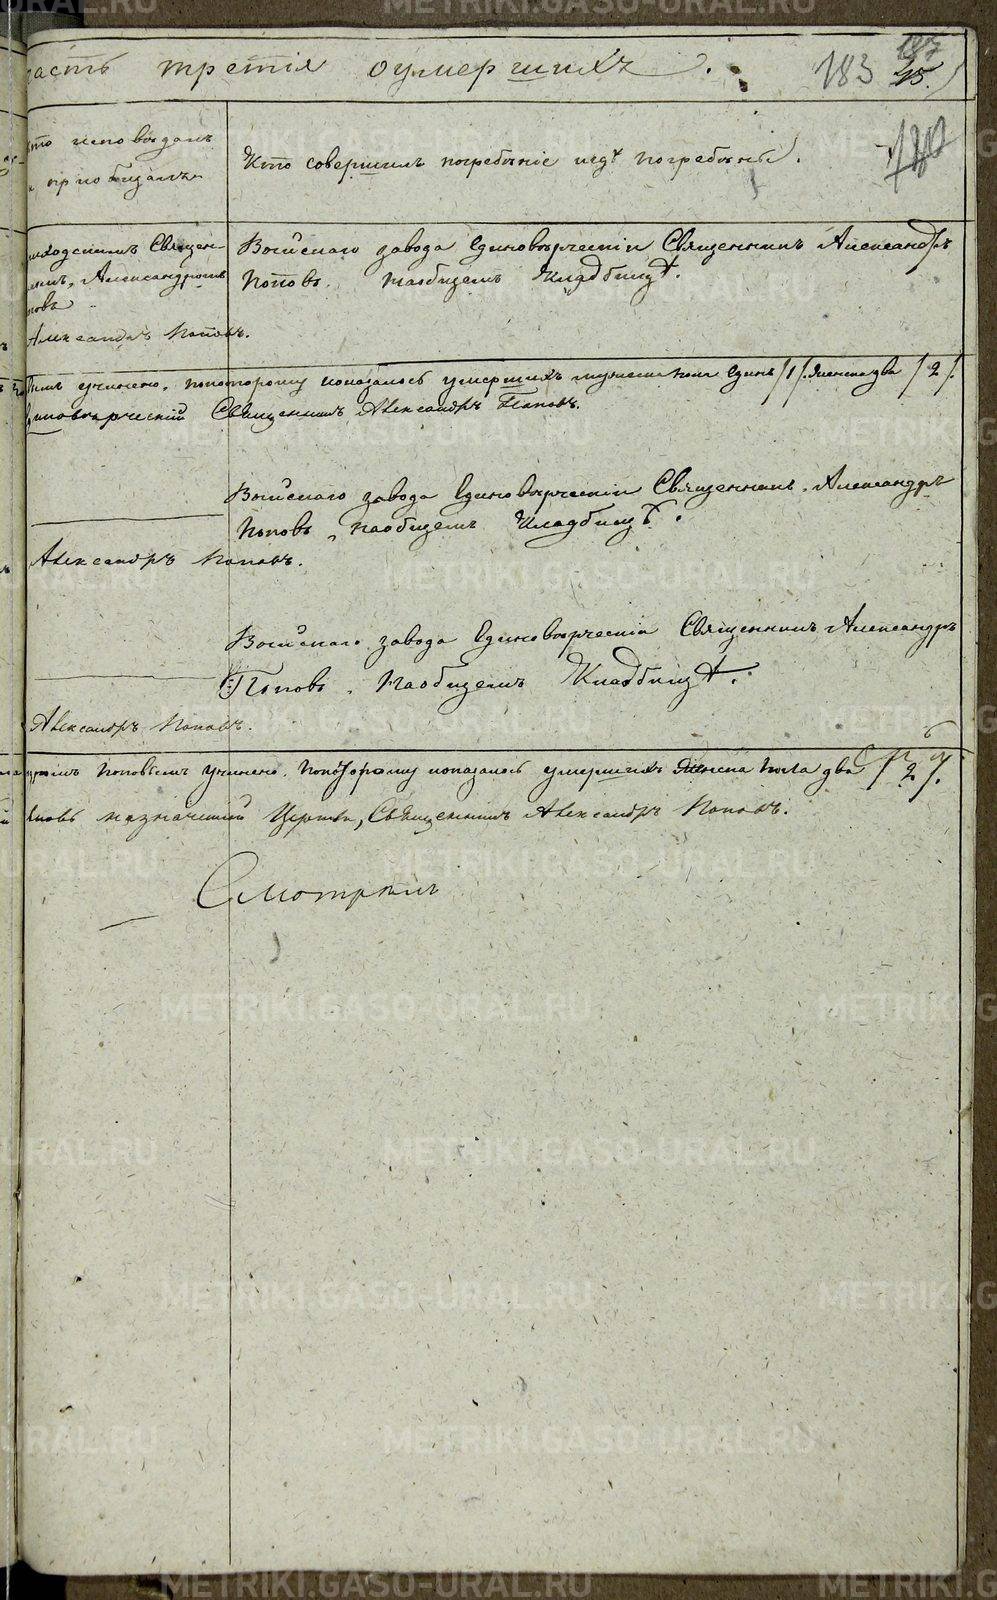 часть третія оумершихъ.
183
187
45.
180
кто исповѣдалъ
и пріобщалъ
Кто совершилъ погребеніе и гдѣ погребены.
приходскимъ Священ-
никомъ, Александромъ
Поповымъ
Воткинскаго завода Единовѣрческій Священникъ Александръ
Поповъ. На общемъ Кладбищѣ.
Александръ Поповъ.
учинено, по которому показалось умершихъ мужеска пола Единъ /1/. Женска два /2/.
Единовѣрческій Священникъ Александръ Поповъ.
завода Единовѣрческій Священникъ Александръ
Поповъ, на общемъ Кладбищѣ.
Александръ Поповъ.
завода Единовѣрческій Священникъ Александръ
Поповъ. На общемъ Кладбищѣ.
Александръ Поповъ.
Поповымъ учинено. По которому показалось умершихъ Женска пола два /2/.
вновь назначенной Церкви, Священникъ Александръ Поповъ.
Смотрѣлъ
METRIKI.GASO-URAL.RU